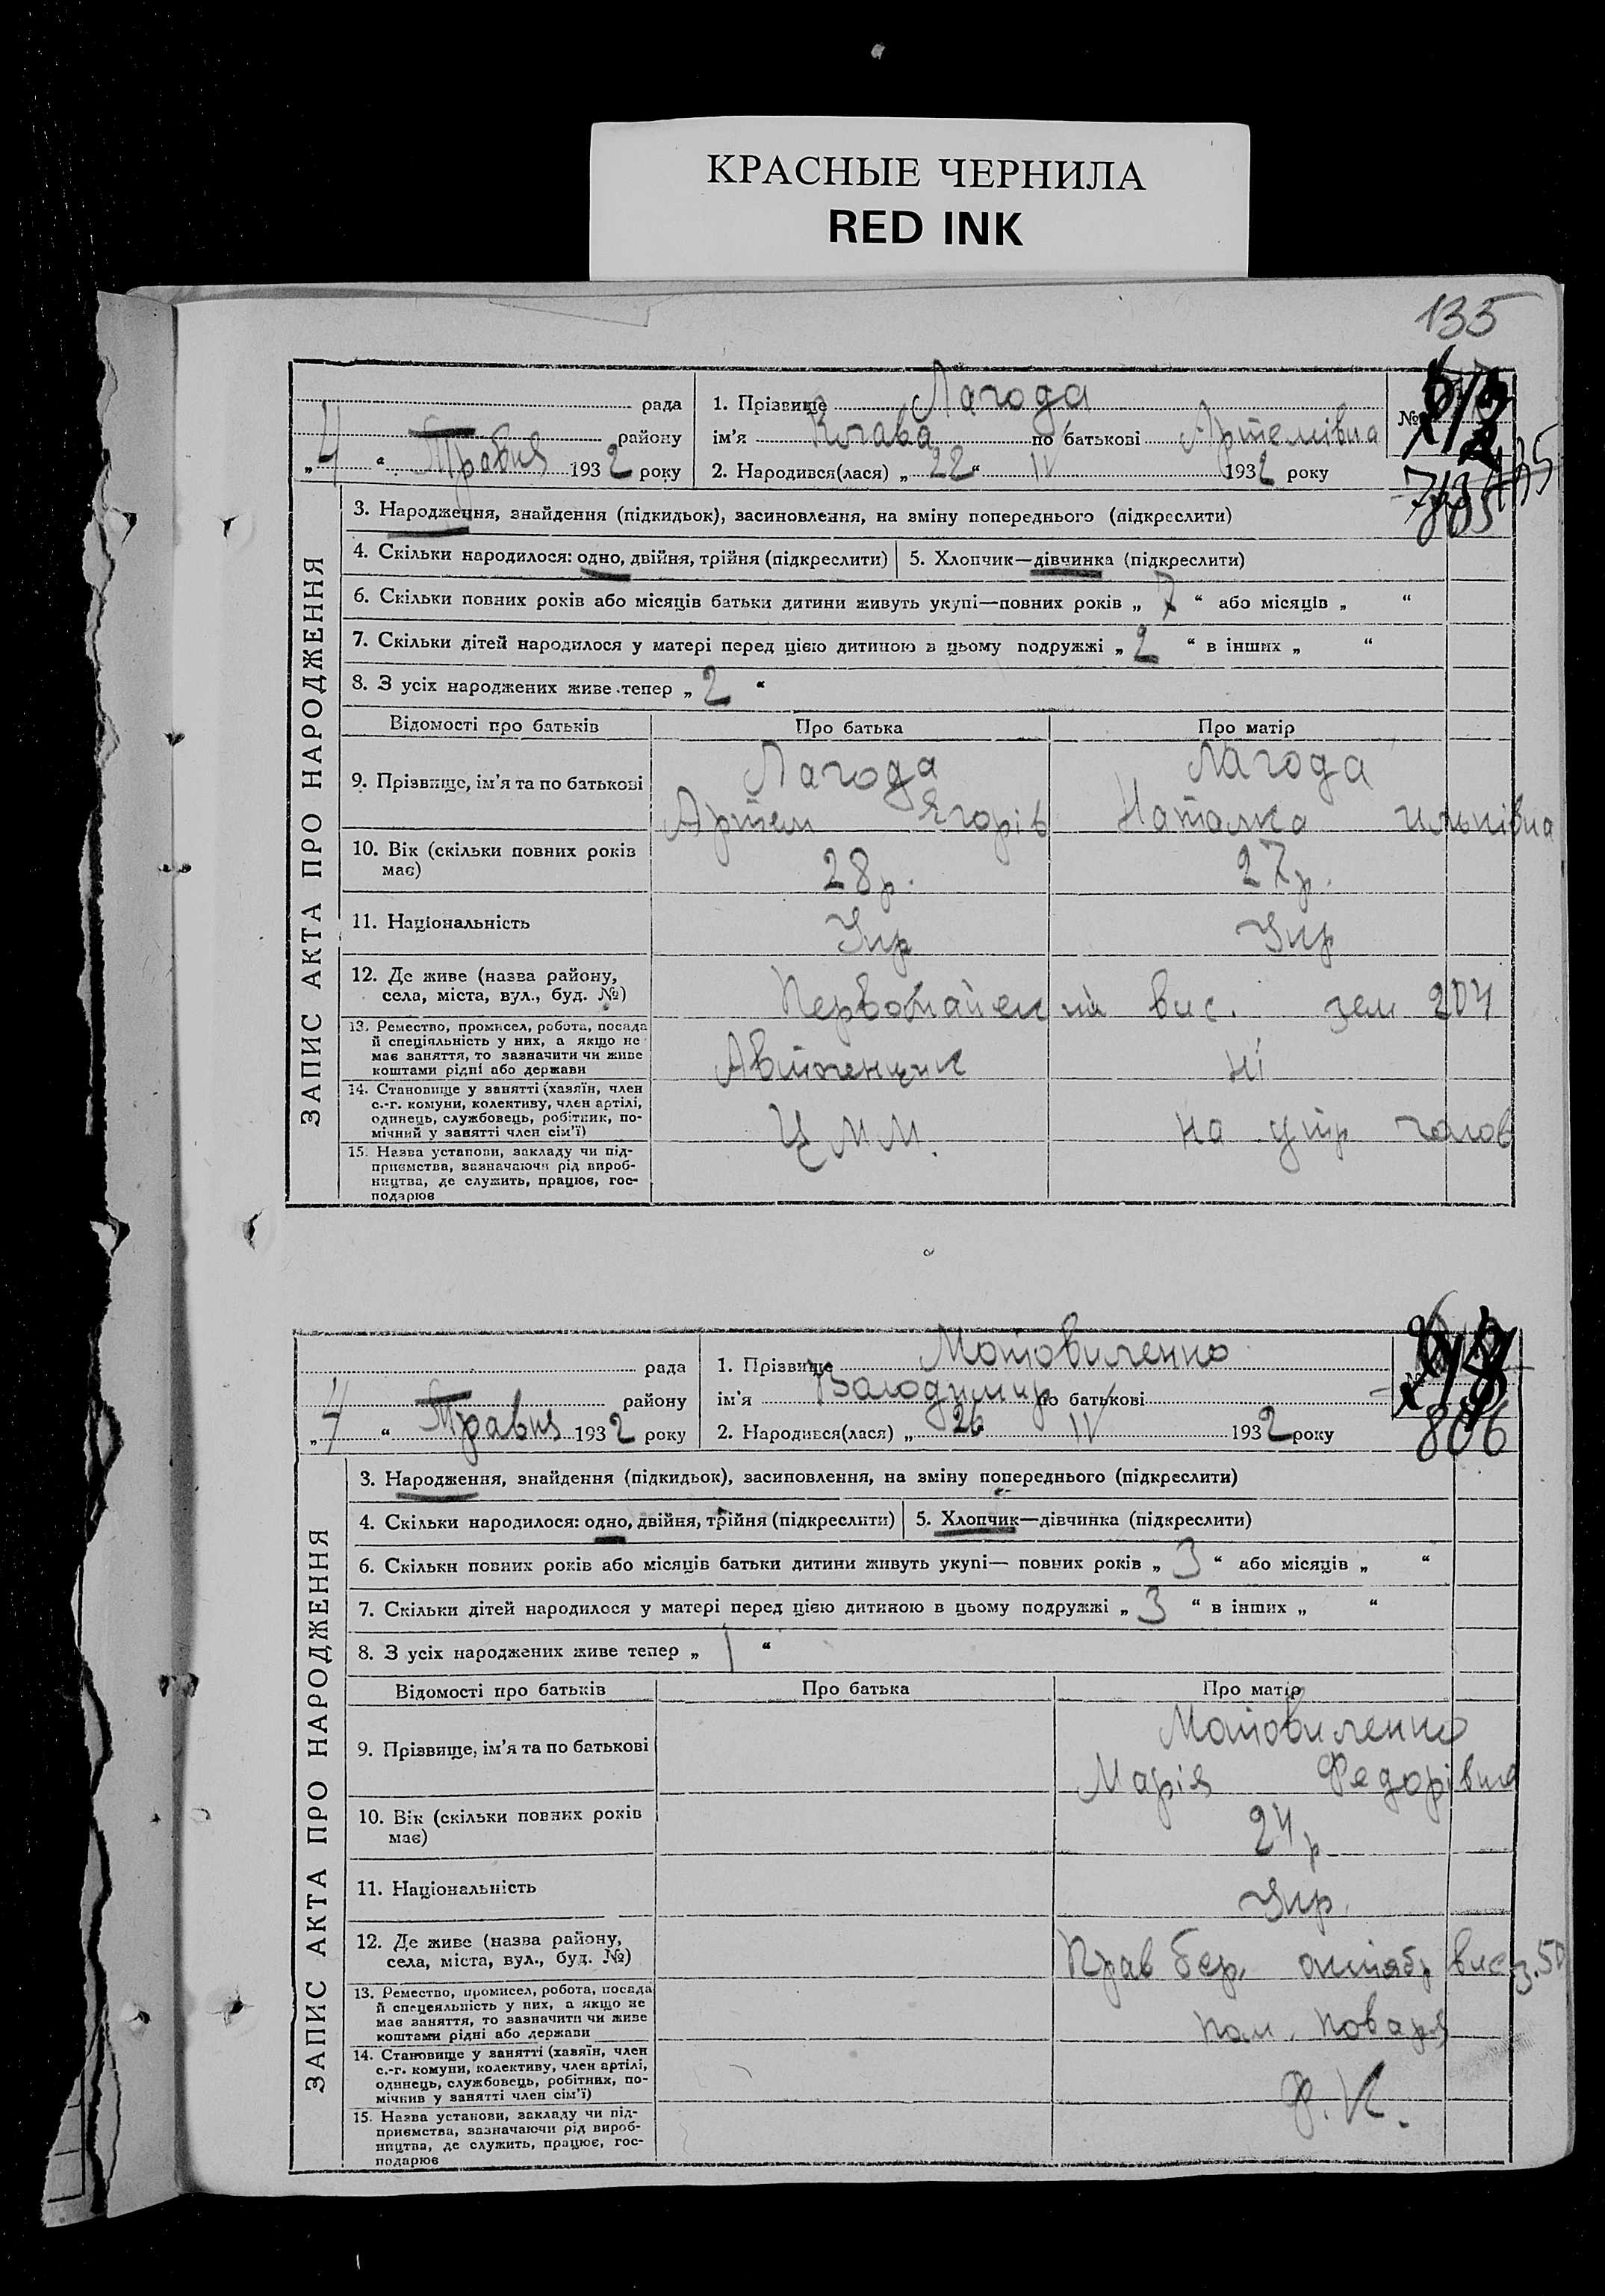 КРАСНЫЕ ЧЕРНИЛА
RED INK
135
рада
району
„ 4 “ Травня 1932 року
1. Прізвище Лагода
ім'я Клава по батькові Артемівна
2. Народився(лася) „ 22 “ IV 1932 року
№
805
ЗАПИС АКТА ПРО НАРОДЖЕННЯ
3. Народження, знайдення (підкидьок), засиновлення, на зміну попереднього (підкреслити)
4. Скільки народилося: одно, двійня, трійня (підкреслити) 5. Хлопчик—дівчинка (підкреслити)
6. Скільки повних років або місяців батьки дитини живуть укупі—повних років „ 7 “ або місяців „ “
7. Скільки дітей народилося у матері перед цією дитиною в цьому подружжі „ 2 “ в інших „ “
8. З усіх народжених живе тепер „ 2 “
Відомості про батьків Про батька Про матір
9. Прізвище, ім'я та по батькові
Лагода
Артем Ягорів
Лагода
Наталка Ильківна
10. Вік (скільки повних років
має)
28 р. 27 р.
11. Національність Укр Укр
12. Де живе (назва району,
села, міста, вул., буд. №)
вис. зем 204
13. Ремество, промисел, робота, посада
й спеціяльність у них, а якщо не
має заняття, то зазначити чи живе
коштами рідні або держави
ні
14. Становище у занятті (хазяїн, член
с.-г. комуни, колективу, член артілі,
одинець, службовець, робітник, по-
мічний у занятті член сім'ї)
Ц М М. на утр голов
15. Назва установи, закладу чи під-
приємства, зазначаючи рід вироб-
ництва, де служить, працює, гос-
подарює
рада
району
„ 4 “ Травня 1932 року
1. Прізвище Мотовиленко
ім'я Володимир по батькові
2. Народився(лася) „ 26 IV 1932 року
806
ЗАПИС АКТА ПРО НАРОДЖЕННЯ
3. Народження, знайдення (підкидьок), засиновлення, на зміну попереднього (підкреслити)
4. Скільки народилося: одно, двійня, трійня (підкреслити) 5. Хлопчик—дівчинка (підкреслити)
6. Скільки повних років або місяців батьки дитини живуть укупі— повних років „ 3 “ або місяців „ “
7. Скільки дітей народилося у матері перед цією дитиною в цьому подружжі „ 3 “ в інших „ “
8. З усіх народжених живе тепер „ 1 “
Відомості про батьків Про батька Про матір
9. Прізвище, ім'я та по батькові
Мотовиленко
Марія Федорівна
10. Вік (скільки повних років
має)
24 р
11. Національність Укр.
12. Де живе (назва району,
села, міста, вул., буд. №)
Прав бер. октябр вис з. 50
13. Ремество, промисел, робота, посада
й спецеяльність у них, а якщо не
має заняття, то зазначити чи живе
коштами рідні або держави
пом. повара
14. Становище у занятті (хазяїн, член
с.-г. комуни, колективу, член артілі,
одинець, службовець, робітник, по-
мічнив у занятті член сім'ї)
Ф. К.
15. Назва установи, закладу чи під-
приємства, зазначаючи рід вироб-
ництва, де служить, працює, гос-
подарює